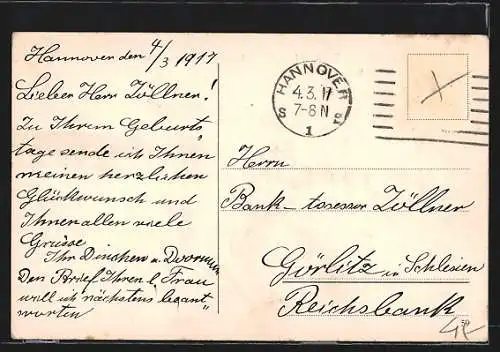 Hannover den 4/3 1917
Lieber Herr Zöllner!
Zu Ihrem Geburts-
tage sende ich Ihnen
meinen herzlichen
Glückwunsch und
Ihnen allen viele
Grüsse
Ihr Dinchen u.
Den Brief Ihrer l. Frau
will ich nächstens beant-
worten
HANNOVER
4.3.17
7-8 N
S
1
Herrn
Bank-Assessor Zöllner
Görlitz in Schlesien
Reichsbank